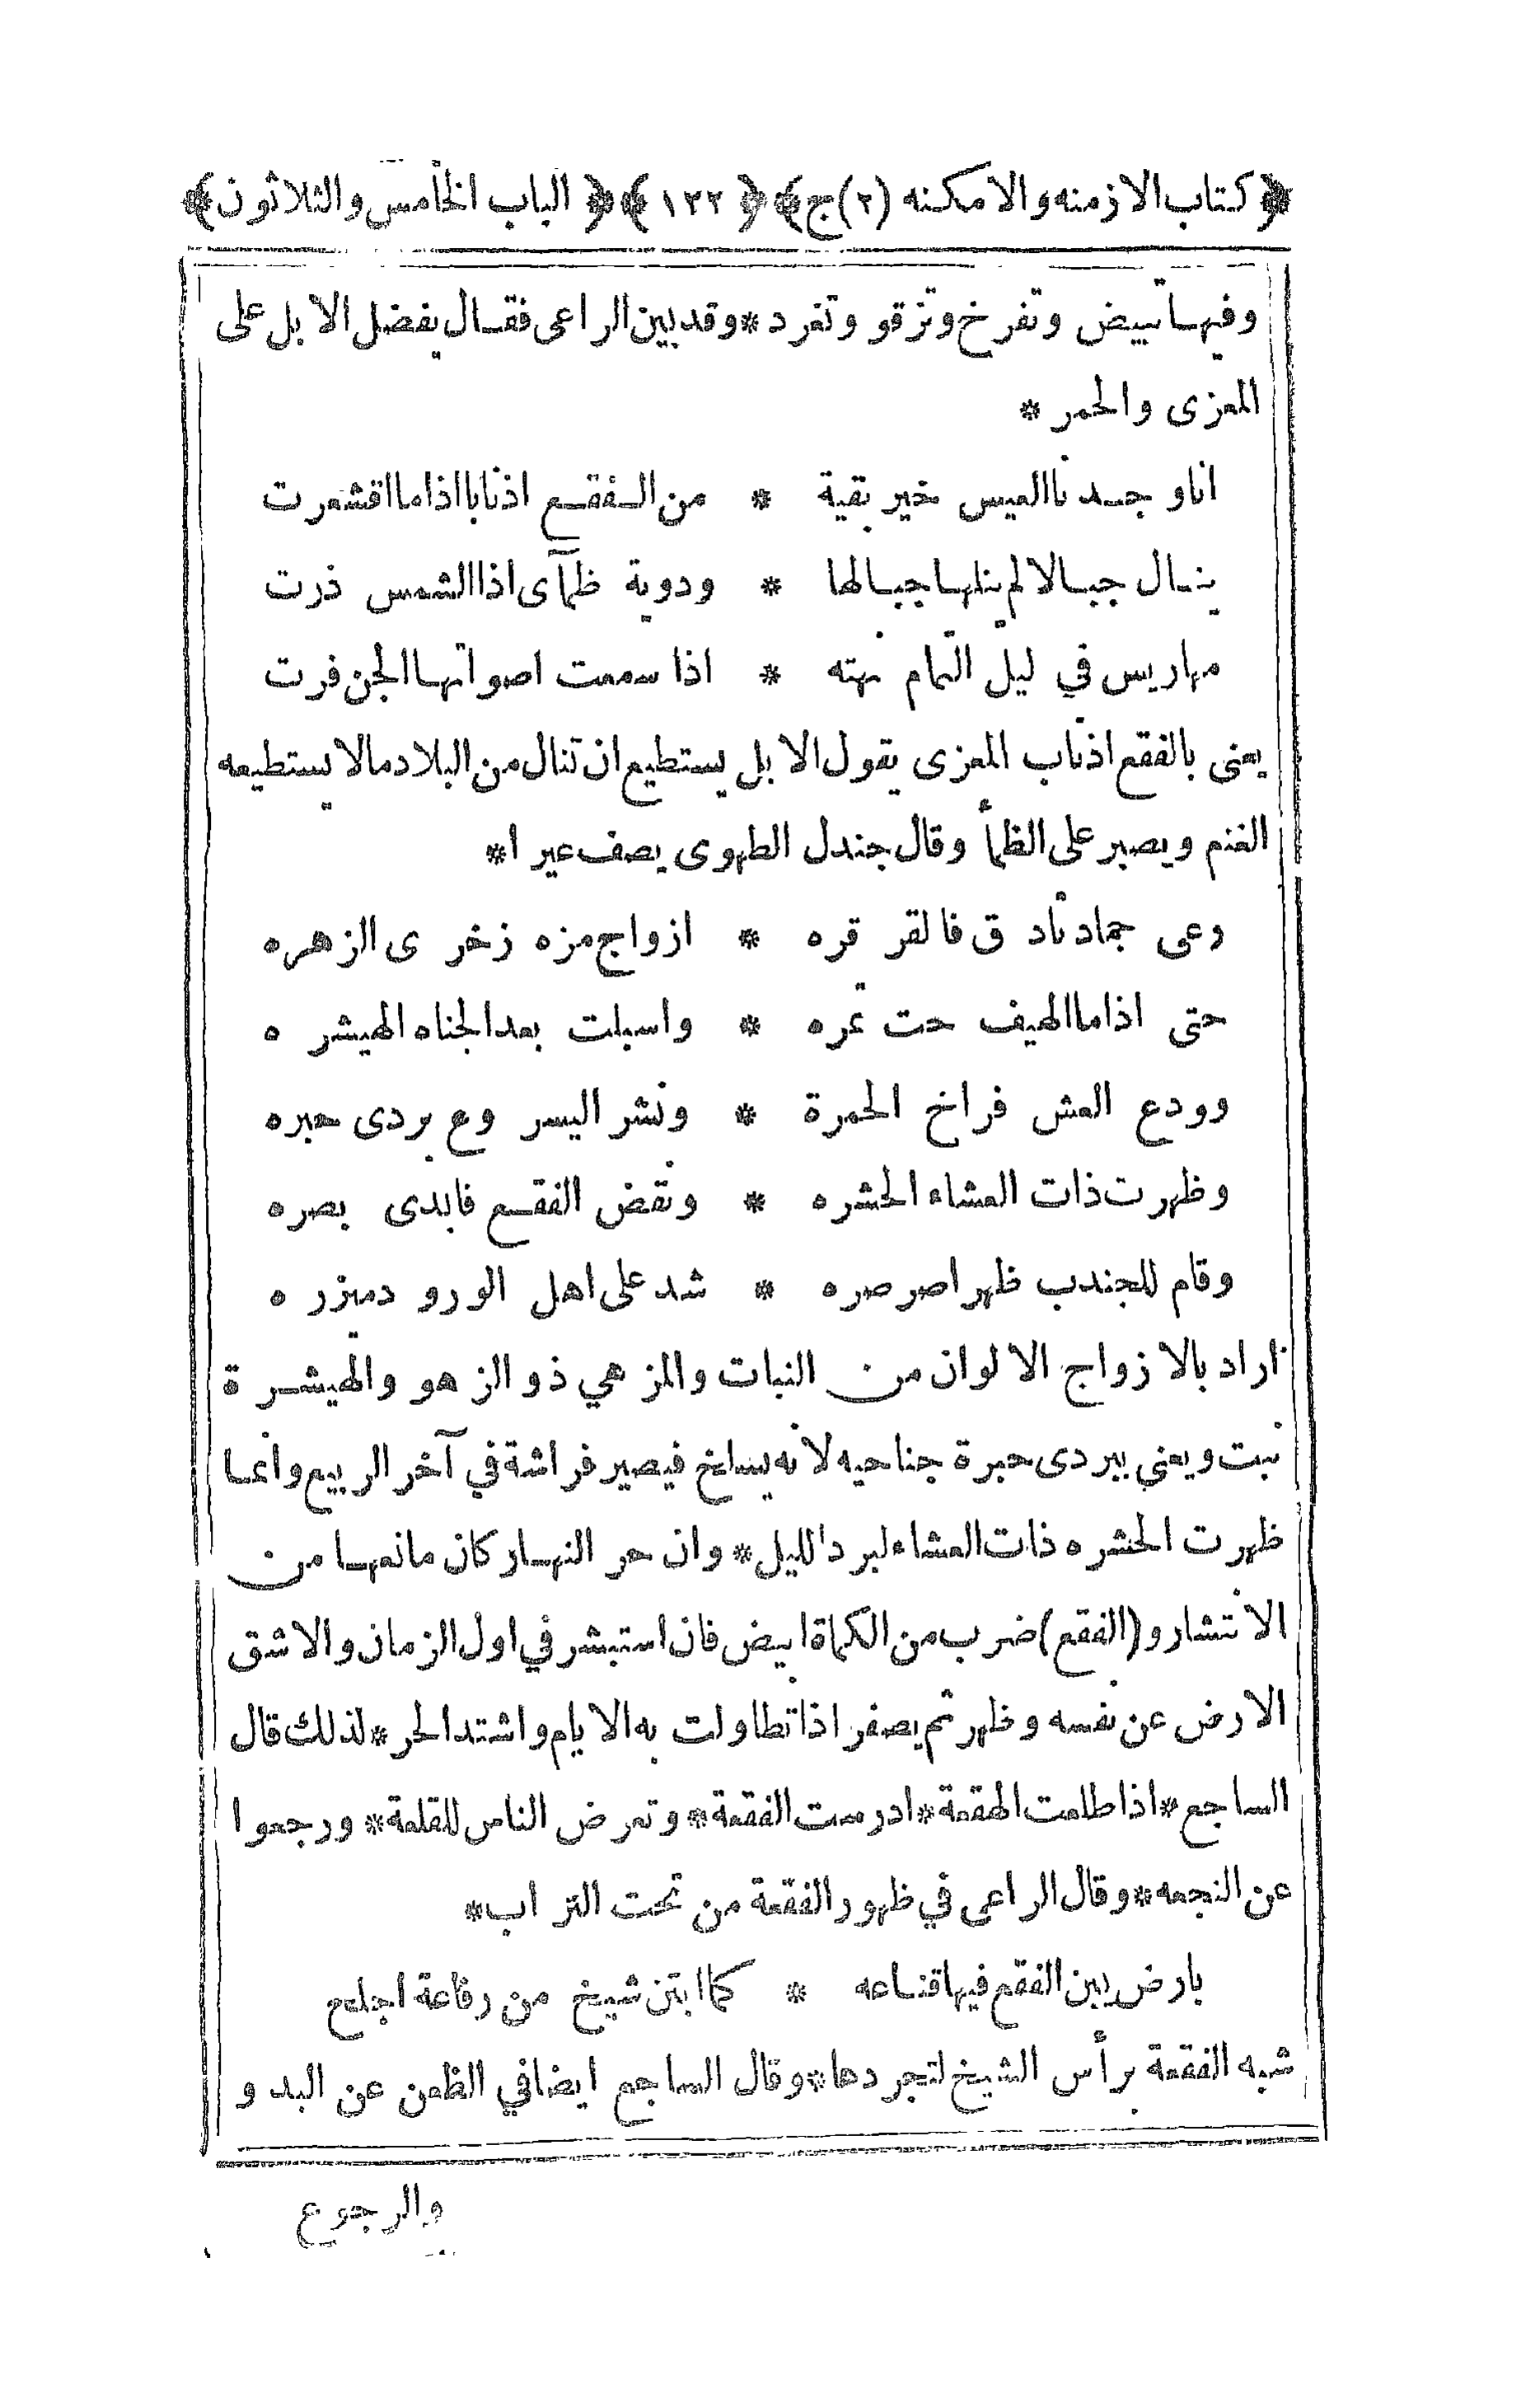 ﴿ كتاب الازمنه والامكنه (٢) ج ﴾ ﴿ ١٢٢ ﴾ ﴿ الباب الخامس والثلاثون ﴾
وفيها تبيض وتفرخ وتزقو وتغرد * وقد بين الراعى فقال يفضل الابل على
المعزى والحمر *
انا وجدنا العيس خير بقية * من الفقع اذنابا اذا ما اقشعرت
ينال جبالا لم ينلها جبالها * ودوية ظمآى اذا الشمس ذرت
مهاريس في ليل التمام نهته * اذا سمعت اصواتها الجن فرت
يعنى بالفقع اذناب المعزى يقول الابل يستطيع ان تنال من البلاد مالا يستطيعه
الغنم ويصبر على الظمأ وقال جندل الطهوى يصف عيرا *
وعى جماد نادق فالقرقره * ازواج مزه زخرى الزهره
حتى اذا ما الهيف حت ثمره * واسبلت بعد الجناه الهيشره
وودع العش فراخ الحمرة * ونشر اليسروع بردى حبره
وظهرت ذات العشاء الحشره * ونقض الفقع فابدى بصره
وقام للجندب ظهرا صرصره * شد على اهل الورود مئزره
اراد بالازواج الالوان من النبات والمزهي ذو الزهو والهيشرة
نبت ويعني ببردى حبرة جناحيه لانه يسلخ فيصير فراشة في آخر الربيع وانما
ظهرت الحشره ذات العشاء لبرد الليل * وان حر النهار كان مانعها من
الانتشار و (الفقع) ضرب من الكماة ابيض فان استبشر في اول الزمان والاشق
الارض عن نفسه وظهر ثم يصفر اذا تطاولت به الايام واشتد الحر * لذلك قال
الساجع * اذا طلعت الهقعة * ادرست الفقعة * وتعرض الناس للقلعة * ورجعوا
عن النجعه * وقال الراعى في ظهور الفقعة من تحت التراب *
بارض يبين الفقع فيها قناعه * كما ابتن شيخ من رفاعة اجلح
شبه الفقعة برأس الشيخ لتجردها * وقال الساجع ايضا في الظعن عن البدو
والرجوع